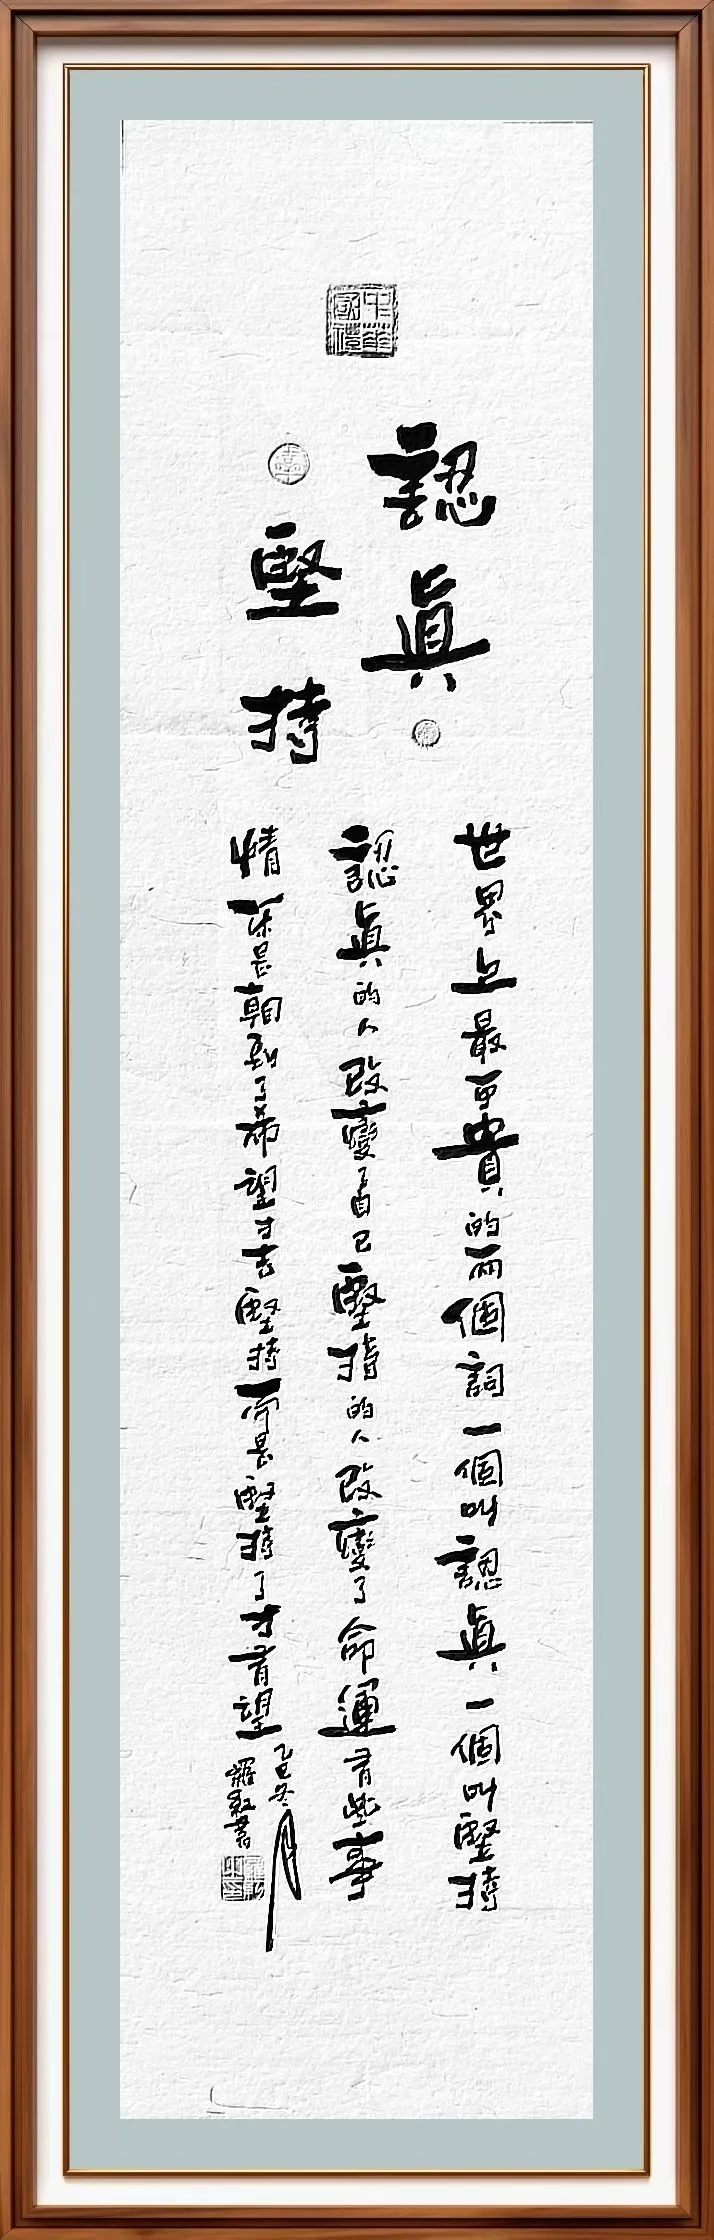 中華國禮
認眞
堅持
世界上最可貴的兩個詞一個叫認眞一個叫堅持
認眞的人改變了自己堅持的人改變了命運有些事
情不是了希望才去堅持而是堅持了才有望
乙巳冬月
羅書